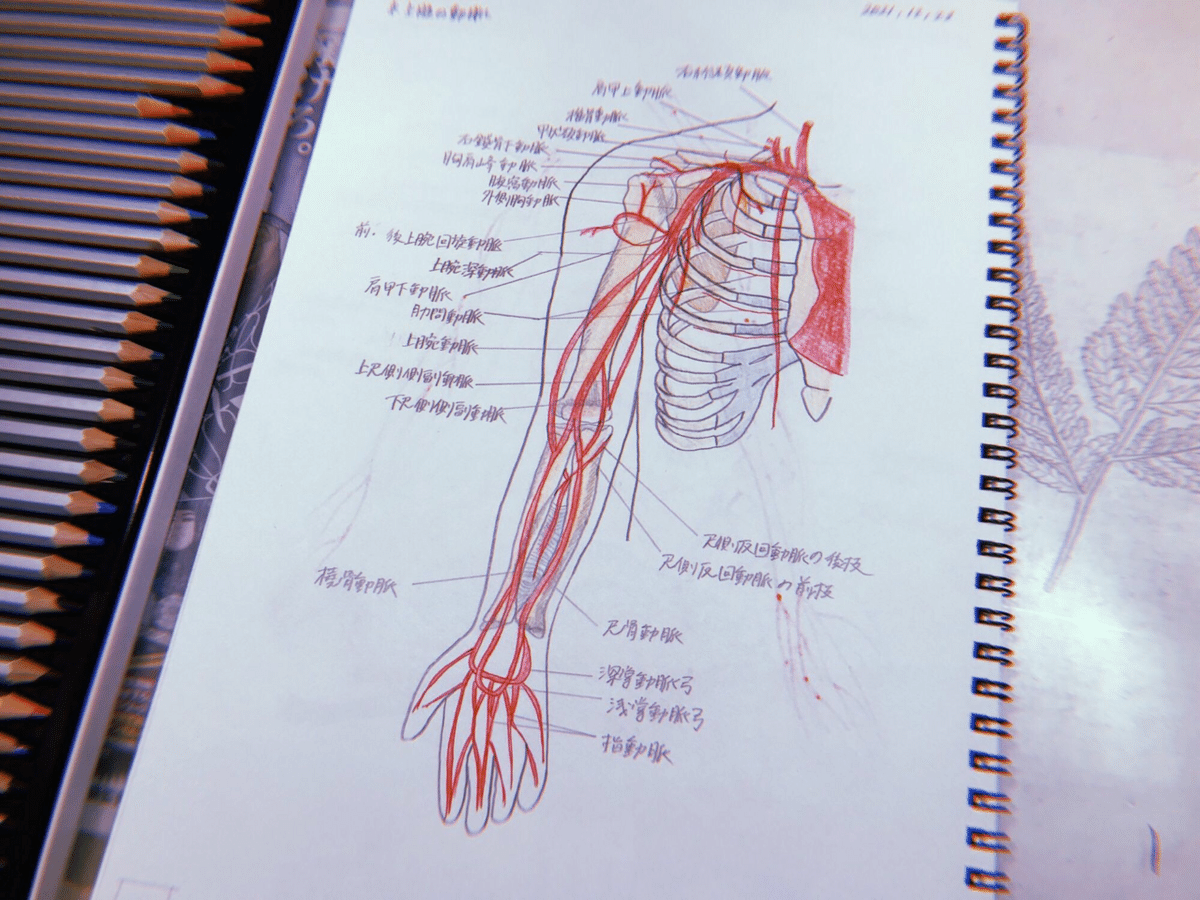 上肢の動脈
2021.12.22
右総頚動脈
肩甲上動脈
椎骨動脈
甲状頚動脈
右鎖骨下動脈
胸肩峰動脈
腋窩動脈
外側胸動脈
前・後上腕回旋動脈
上腕深動脈
肩甲下動脈
肋間動脈
上腕動脈
上尺側側副動脈
下尺側側副動脈
尺側反回動脈の後枝
尺側反回動脈の前枝
橈骨動脈
尺骨動脈
深掌動脈弓
浅掌動脈弓
指動脈